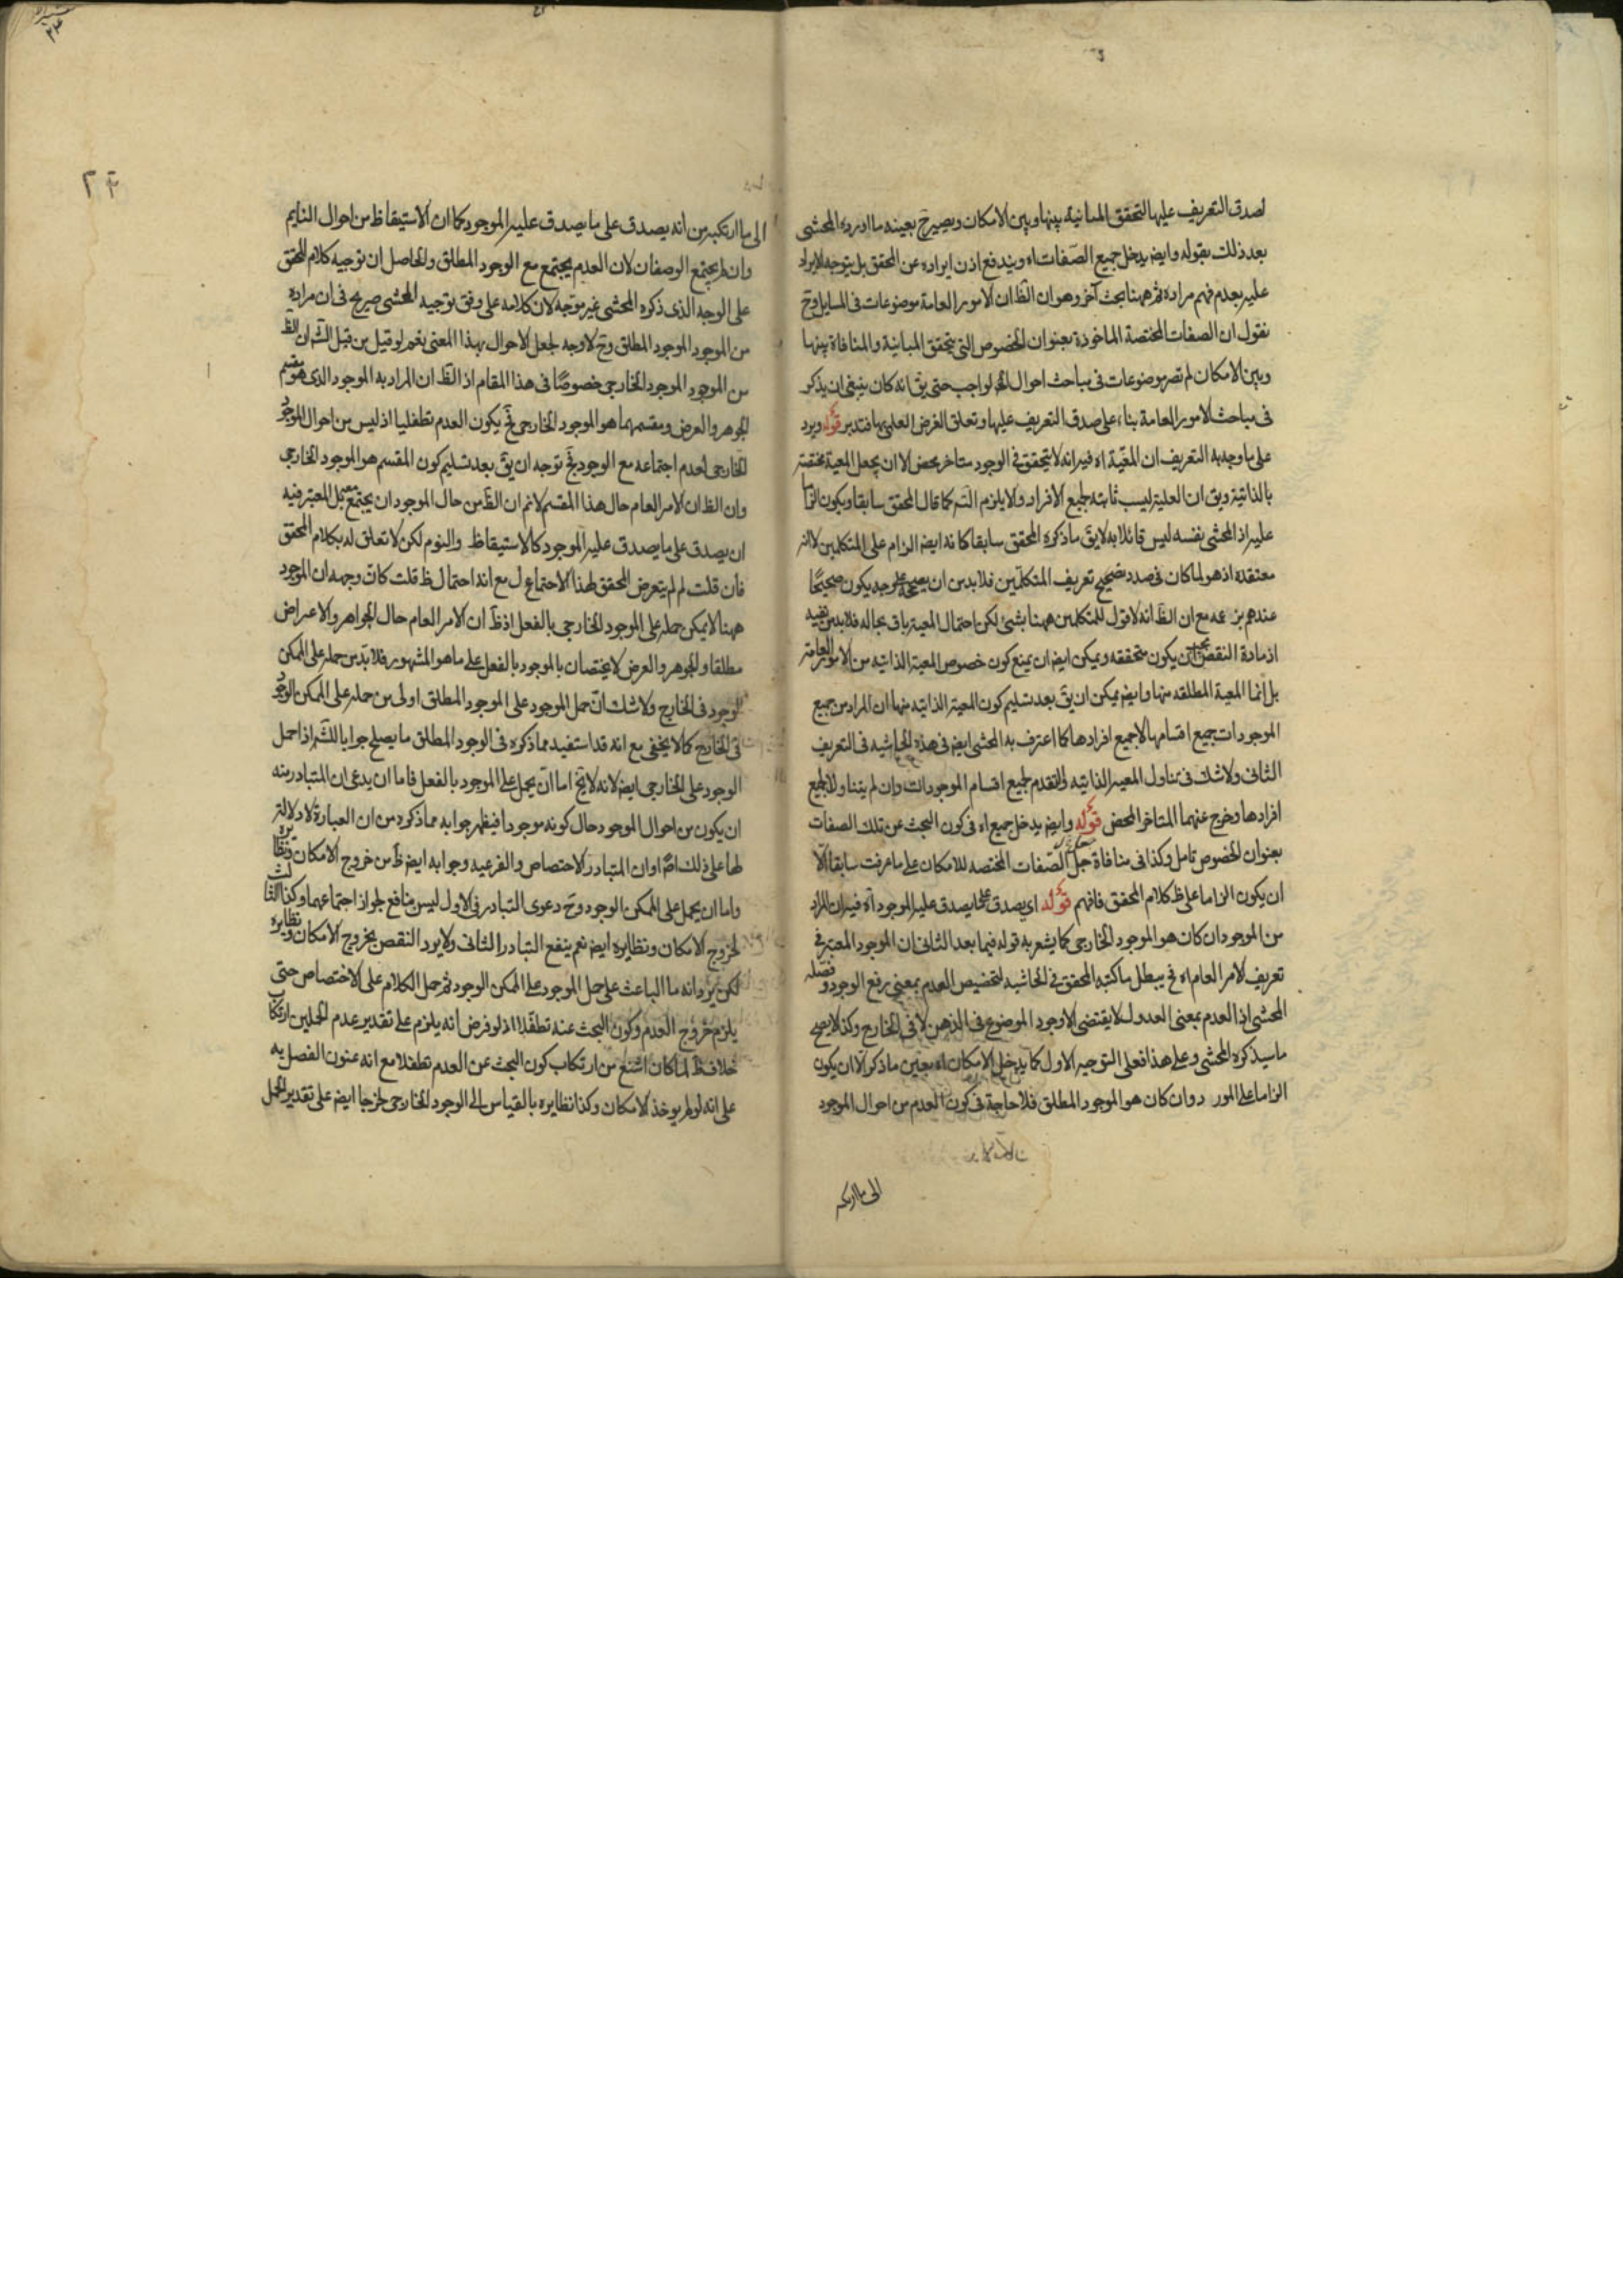 لصدق التعريف عليها لتحقق المباينة بينها وبين الامكان ويصير ح بعينه ما اورده المحشى
بعد ذلك بقوله وايضا يدخل جميع الصفات اه ويندفع اذن ايراده عن المحقق بل يتوجه الايراد
عليه بعدم فهم مراده ثم ههنا بحث آخر وهو ان الظ ان الامور العامة موضوعات فى المسايل وح
نقول ان الصفات المختصة الماخوذة بعنوان الخصوص التى يتحقق المباينة والمنافاة بينها
وبين الامكان لم تصر موضوعات فى مباحث احوال الواجب حتى يق انه كان ينبغى ان يذكر
فى مباحث الامور العامة بناء على صدق التعريف عليها وتعلق الغرض العلمى بها فتدبر قوله ويرد
على ما وجه به التعريف ان المعية اه فيه انه لا يتحقق فى الوجود متاخر محض الا ان يجعل المعية مختصة
بالذاتية ويق ان العلية ليست ثابتة لجميع الافراد ولا يلزم التس كما قال المحقق سابقا ويكون الزاما
عليه اذ المحشى بنفسه ليس قائلا به لا يق ما ذكره المحقق سابقا كانه ايضا الزام على المتكلمين لا انه
معتقده اذ هو لما كان فى صدد تصحيح تعريف المتكلمين فلا بد من ان يصححه على وجه يكون صحيحا
عندهم بزعمه مع ان الظ انه لا قول للمتكلمين ههنا بشئ لكن احتمال المعية باق بحاله فلا بد من نفيه
اذ مادة النقض يجب ان يكون متحققه ويمكن ايضا ان يمنع كون خصوص المعية الذاتيه من الامور العامة
بل انما المعية المطلقه منها وايضا يمكن ان يق بعد تسليم كون المعية الذاتيه منها ان المراد من جميع
الموجودات جميع اقسامها لا جميع افرادها كما اعترف به المحشى ايضا فى هذه الحاشيه فى التعريف
الثانى ولا شك فى تناول المعية الذاتيه والتقدم لجميع اقسام الموجودات وان لم يتناولا لجميع
افرادها وخرج عنهما المتاخر المحض قوله وايضا يدخل جميع اه فى كون البحث عن تلك الصفات
بعنوان الخصوص تامل وكذا فى منافاة جل الصفات المختصه للامكان على ما عرفت سابقا الا
ان يكون الزاما على ظ كلام المحقق فافهم قوله اى يصدق على ما يصدق عليه الموجود اه فيه ان المراد
من الموجود ان كان هو الموجود الخارجى كما يشعر به قوله فيما بعد الثانى ان الموجود المعتبر فى
تعريف الامر العام اه فح يبطل ما كتبه المحقق فى الحاشيه لتخصيص العدم بمعنى رفع الوجود وفصله
المحشى اذ العدم بمعنى العدول لا يقتضى الا وجود الموضوع فى الذهن لا فى الخارج وكذا لا يصح
ما سيذكره المحشى وعلى هذا فعلى التوجيه الاول كما يدخل الامكان اه بعين ما ذكر الا ان يكون
الزاما على المورد وان كان هو الموجود المطلق فلا حاجة فى كون العدم من احوال الموجود
الى ما ارتكبه
الى ما ارتكبه من انه يصدق على ما يصدق عليه الموجود كما ان الاستيقاظ من احوال النايم
وان لم يجتمع الوصفان لان العدم يجتمع مع الوجود المطلق والحاصل ان توجيه كلام المحقق
على الوجه الذى ذكره المحشى غير موجه لان كلامه على وفق توجيه المحشى صريح فى ان مراده
من الموجود الموجود المطلق وح لا وجه لجعل الاحوال بهذا المعنى نعم لو قيل من قبل الش ان الظ
من الموجود الموجود الخارجى خصوصا فى هذا المقام اذ الظ ان المراد به الموجود الذى هو مقسم
الجوهر والعرض ومقسمهما هو الموجود الخارجى فح يكون العدم تطفليا اذ ليس من احوال الموجود
الخارجى لعدم اجتماعه مع الوجود فح توجه ان يق بعد تسليم كون المقسم هو الموجود الخارجى
وان الظ ان الامر العام حال هذا المقسم لا نم ان الظ من حال الموجود ان يجتمع معه بل المعتبر فيه
ان يصدق على ما يصدق عليه الموجود كالاستيقاظ والنوم لكن لا تعلق له بكلام المحقق
فان قلت لم لم يتعرض المحقق لهذا الاحتماع ل مع انه احتمال ظ قلت كان وجهه ان الموجود
ههنا لا يمكن حمله على الموجود الخارجى بالفعل اذ ظ ان الامر العام حال الجواهر والاعراض
مطلقا والجوهر والعرض لا يختصان بالموجود بالفعل على ما هو المشهور فلا بد من حمله على الممكن
الوجود فى الخارج ولا شك ان حمل الموجود على الموجود المطلق اولى من حمله على الممكن الوجود
فى الخارج كما لا يخفى مع انه قد استفيد مما ذكره فى الوجود المطلق ما يصلح جوابا للش اذا حمل
الوجود على الخارجى ايضا لانه لا يخ اما ان يحمل على الموجود بالفعل فاما ان يدعى ان المتبادر منه
ان يكون من احوال الموجود حال كونه موجودا فيظهر جوابه مما ذكره من ان العبارة لا دلالة
لها على ذلك اصلا او ان المتبادر الاختصاص والفرعيه وجوابه ايضا ظ من خروج الامكان ونظايره
واما ان يحمل على الممكن الوجود وح دعوى التبادر فى الاول ليس بنافع لجواز اجتماعهما وكذا الثالث
لخروج الامكان ونظايره ايضا نعم ينفع التبادر الثانى ولا يرد النقض بخروج الامكان ونظايره
لكن يرد انه ما الباعث على حمل الموجود على الممكن الوجود ثم حمل الكلام على الاختصاص حتى
يلزم خروج العدم وكون البحث عنه تطفلا اذ لو فرض انه يلزم على تقدير عدم الحملين ارتكاب
خلاف ظ لما كان اشنع من ارتكاب كون البحث عن العدم تطفلا مع انه عنون الفصل به
على انه لو لم يوخذ الامكان وكذا نظايره بالقياس الى الوجود الخارجى لخرجا ايضا على تقدير الحمل